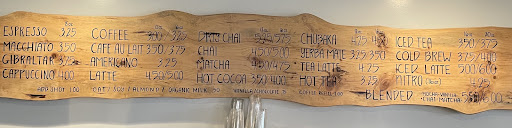 ESPRESSO 325
MACCHIATO 350
GIBRALTAR 375
CAPPUCCINO 400
ADD SHOT 100
COFFEE 300 325
CAFE AU LAIT 350 375
AMERICANO 325
LATTE 450/500
OAT / SOY / ALMOND / ORGANIC MILK
DIRTY CHAI
CHAI 450/500
MATCHA
HOT COCOA 350/400
CHUBARA
YERBA MATE 325/350
TEA LATTE 425
HOT TEA
ICED TEA 350 375
COLD BREW 375/400
ICED LATTE 500/600
NITRO
BLENDED MOCHA VANILLA
CHAI MATCHA